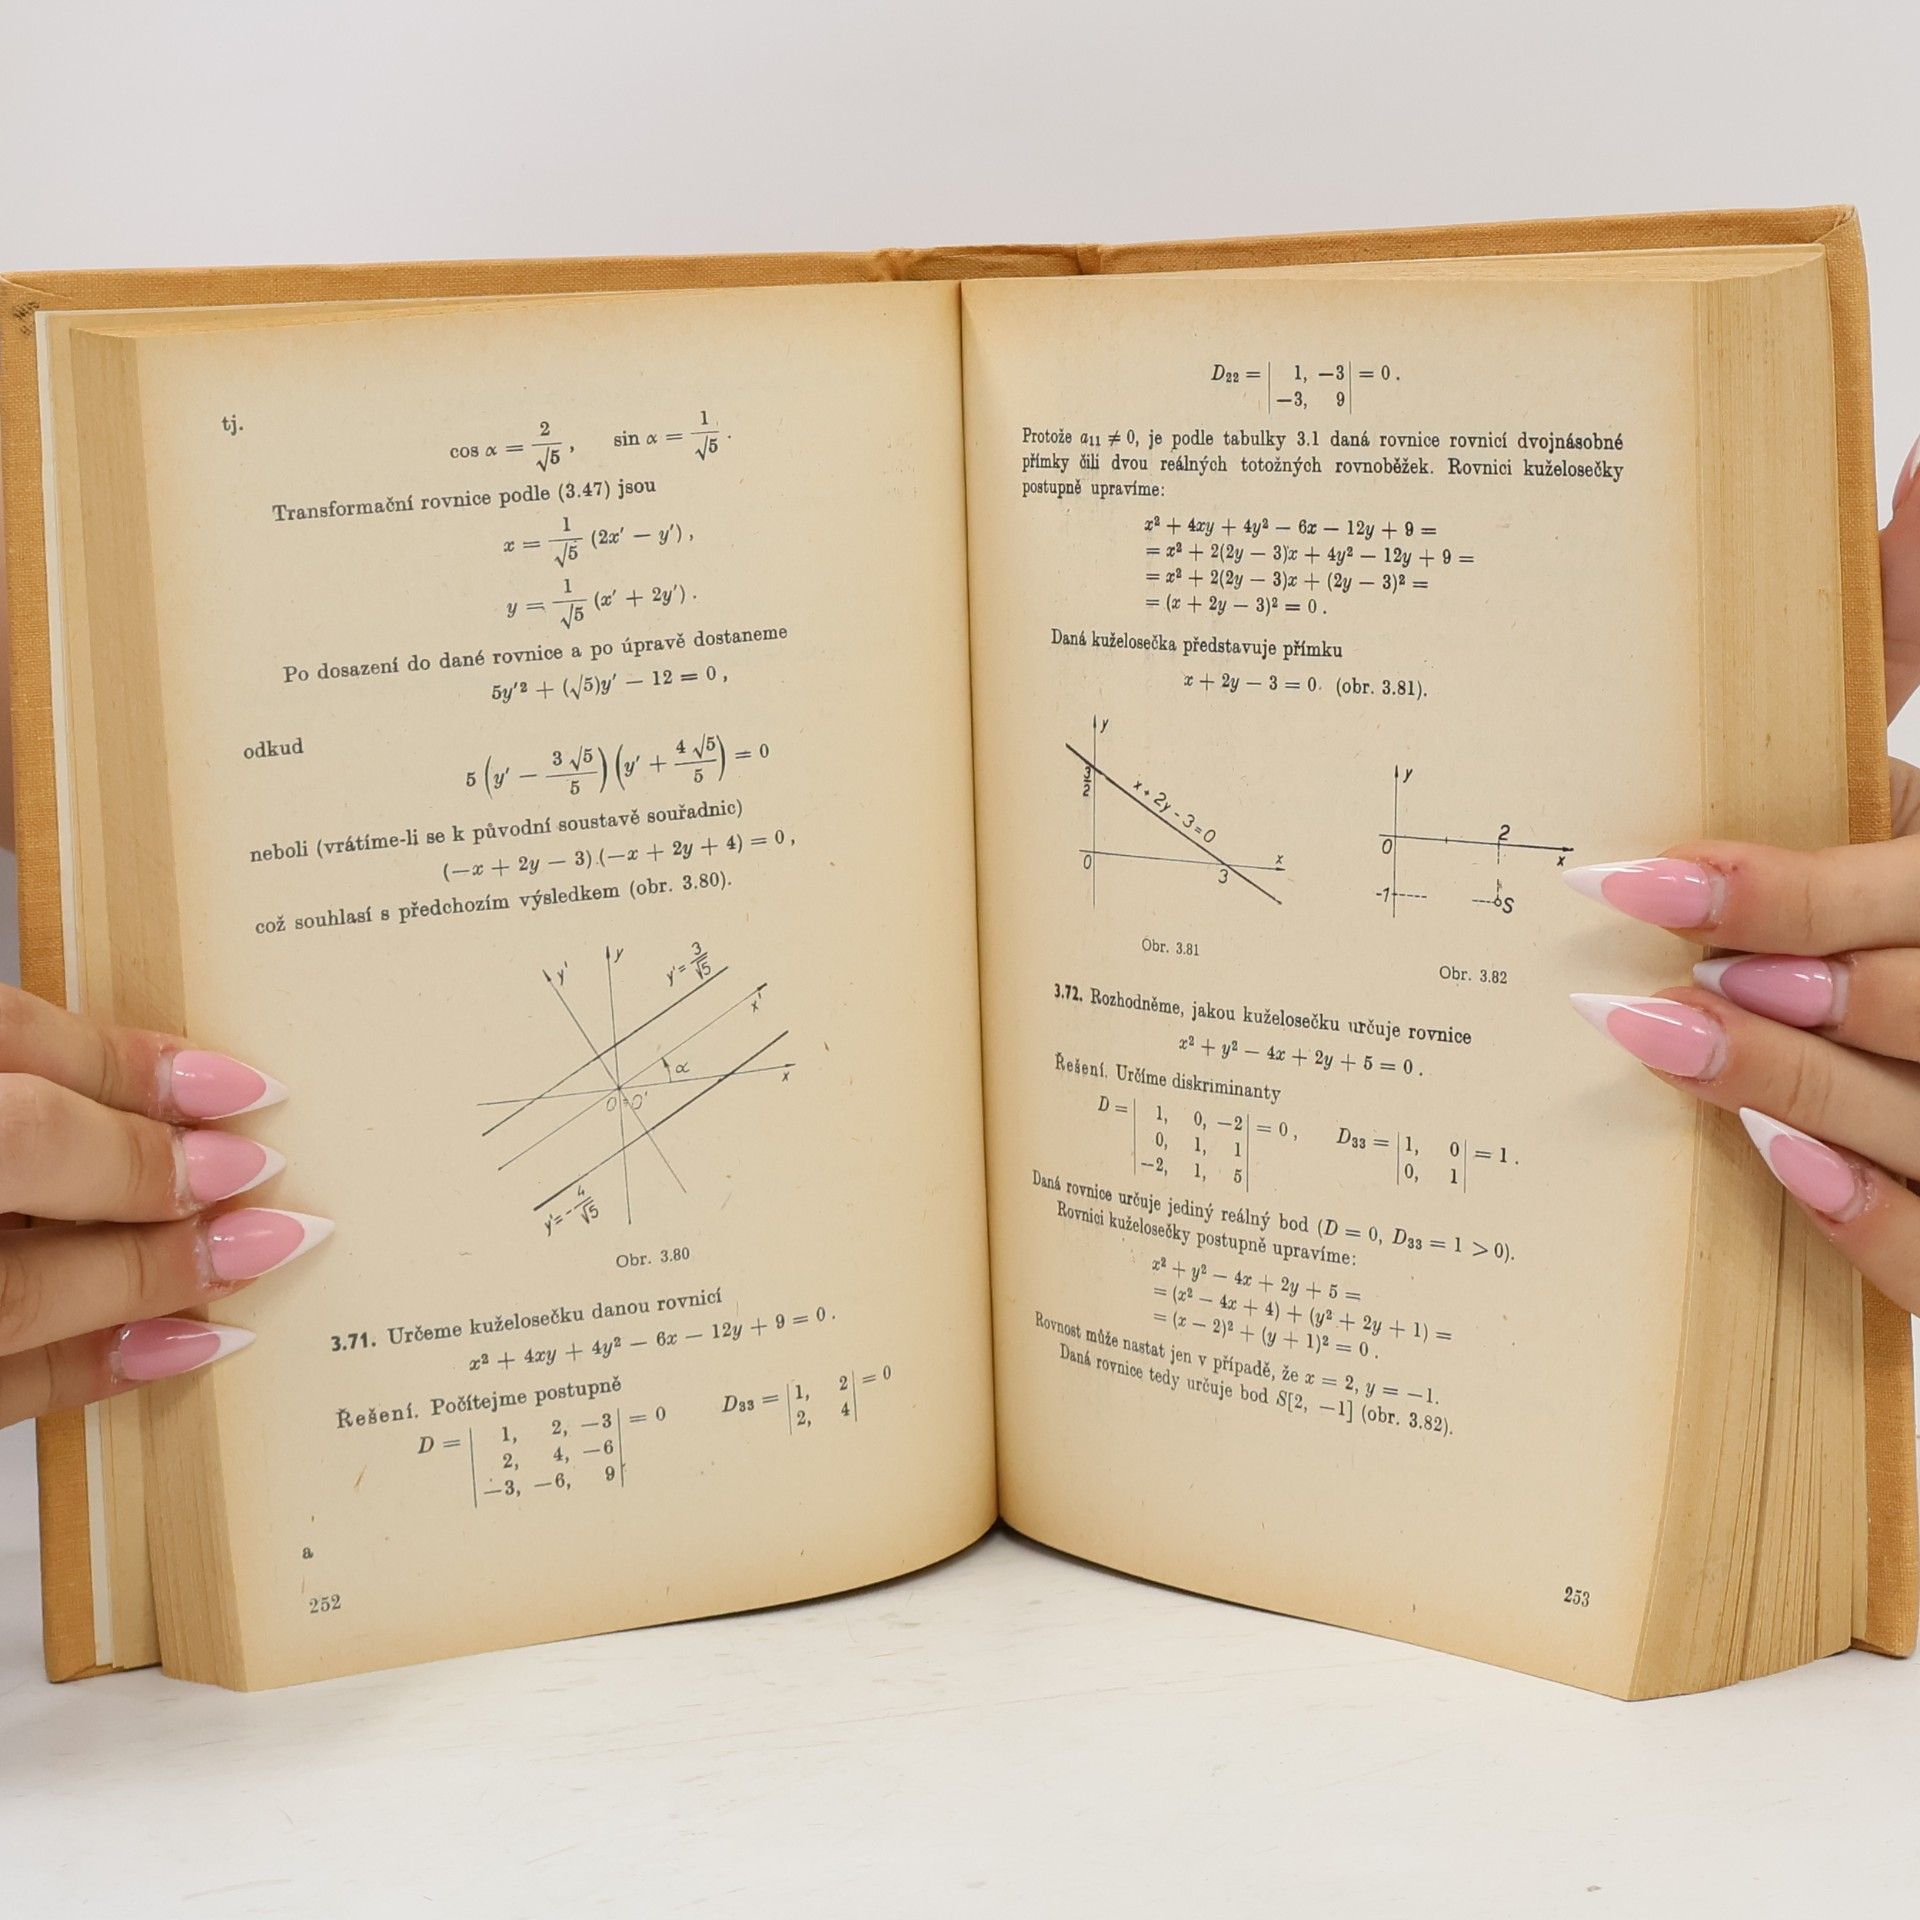 tj.
cos α = 2/√5 , sin α = 1/√5 .
Transformační rovnice podle (3.47) jsou
x = 1/√5 (2x′ − y′) ,
y = 1/√5 (x′ + 2y′) .
Po dosazení do dané rovnice a po úpravě dostaneme
5y′² + (√5)y′ − 12 = 0 ,
odkud
5 (y′ − 3 √5/5) (y′ + 4 √5/5) = 0
neboli (vrátíme-li se k původní soustavě souřadnic)
(−x + 2y − 3) (−x + 2y + 4) = 0 ,
což souhlasí s předchozím výsledkem (obr. 3.80).
y′ y y′=3/√5
x′
α
x
0≡0′
y′=−4/√5
Obr. 3.80
3.71. Určeme kuželosečku danou rovnicí
x² + 4xy + 4y² − 6x − 12y + 9 = 0 .
Řešení. Počítejme postupně
D = | 1, 2, −3 | = 0 D₃₃ = | 1, 2 | = 0
| 2, 4, −6 | | 2, 4 |
| −3, −6, 9 |
a
252
D₂₂ = | 1, −3 | = 0 .
| −3, 9 |
Protože a₁₁ ≠ 0, je podle tabulky 3.1 daná rovnice rovnicí dvojnásobné
přímky čili dvou reálných totožných rovnoběžek. Rovnici kuželosečky
postupně upravíme:
x² + 4xy + 4y² − 6x − 12y + 9 =
= x² + 2(2y − 3)x + 4y² − 12y + 9 =
= x² + 2(2y − 3)x + (2y − 3)² =
= (x + 2y − 3)² = 0 .
Daná kuželosečka představuje přímku
x + 2y − 3 = 0. (obr. 3.81).
y
3/2
x+2y−3=0
0 3 x
Obr. 3.81
y
0 2 x
-1 S
Obr. 3.82
3.72. Rozhodněme, jakou kuželosečku určuje rovnice
x² + y² − 4x + 2y + 5 = 0 .
Řešení. Určíme diskriminanty
D = | 1, 0, −2 | = 0 , D₃₃ = | 1, 0 | = 1 .
| 0, 1, 1 | | 0, 1 |
| −2, 1, 5 |
Daná rovnice určuje jediný reálný bod (D = 0, D₃₃ = 1 > 0).
Rovnici kuželosečky postupně upravíme:
x² + y² − 4x + 2y + 5 =
= (x² − 4x + 4) + (y² + 2y + 1) =
= (x − 2)² + (y + 1)² = 0 .
Rovnost může nastat jen v případě, že x = 2, y = −1.
Daná rovnice tedy určuje bod S[2, −1] (obr. 3.82).
253